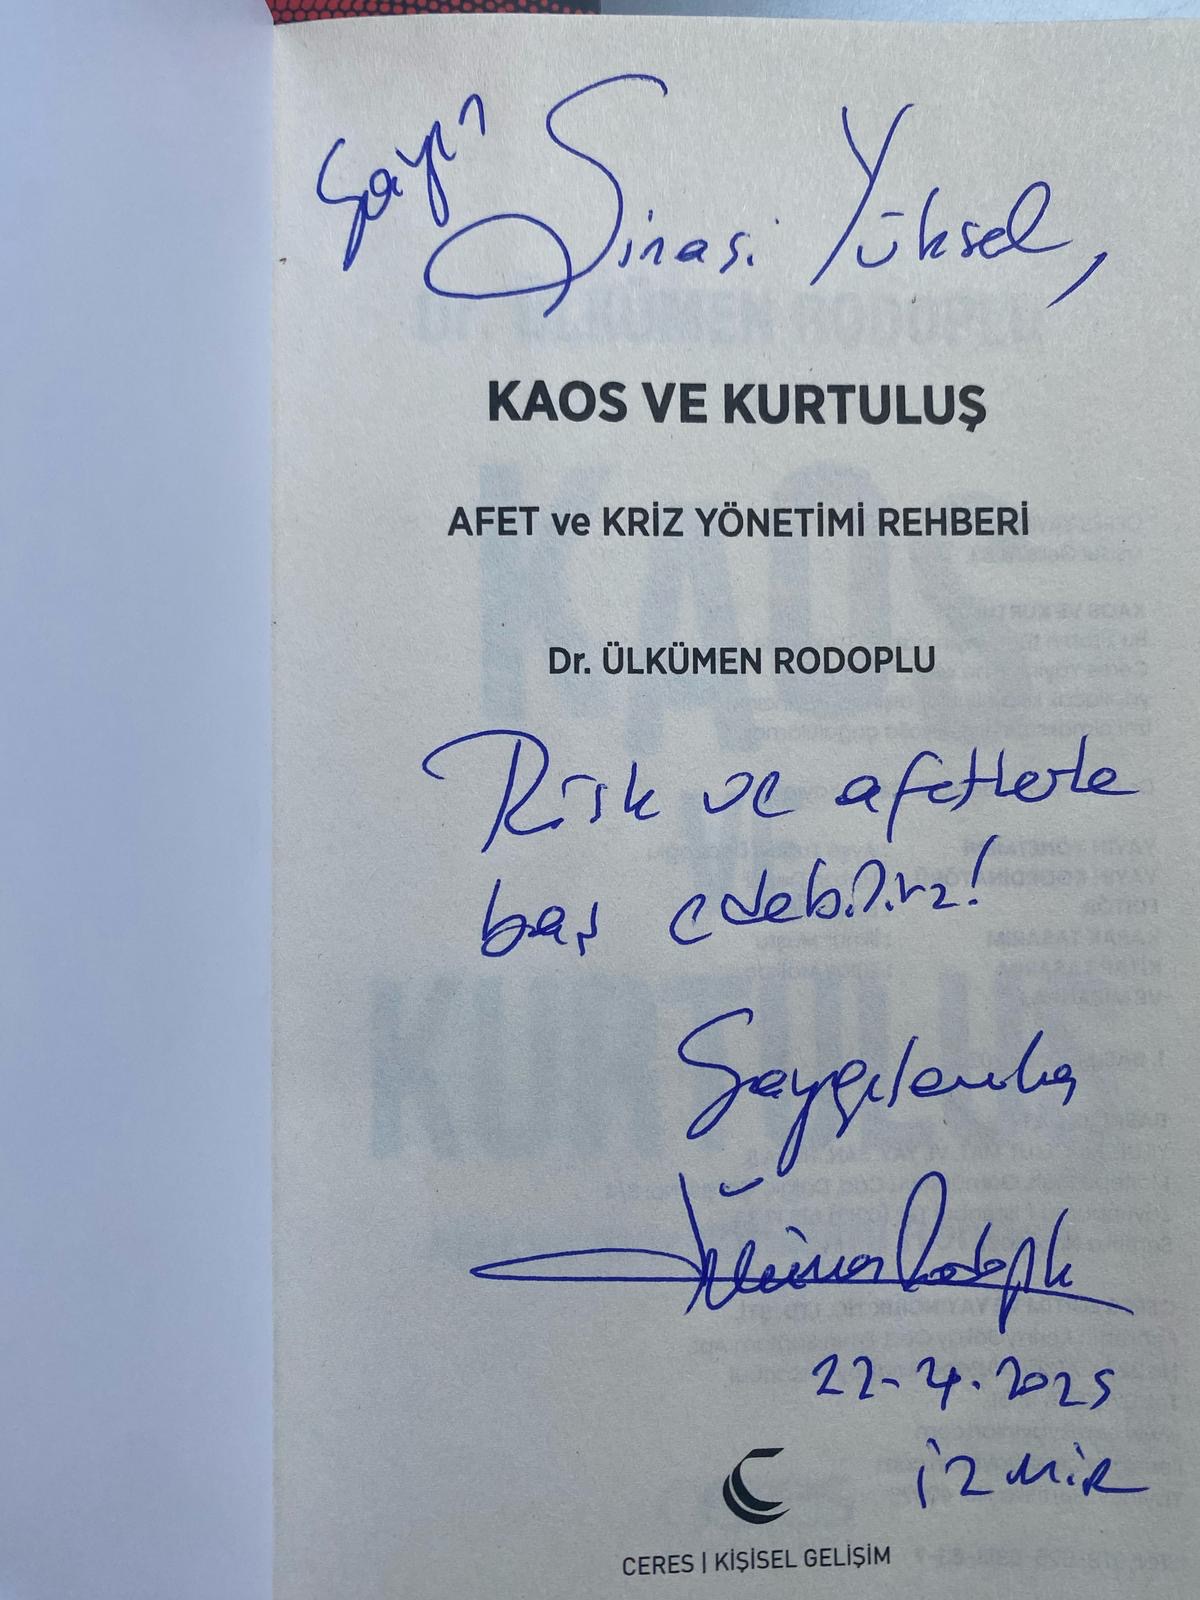 Sayın Şinasi Yüksel,
KAOS VE KURTULUŞ
AFET ve KRİZ YÖNETİMİ REHBERİ
Dr. ÜLKÜMEN RODOPLU
Risk ve afetlerle
baş edebiliriz!
Saygılarımla
Ülkümen Rodoplu
22-4-2025
İZMİR
CERES | KİŞİSEL GELİŞİM